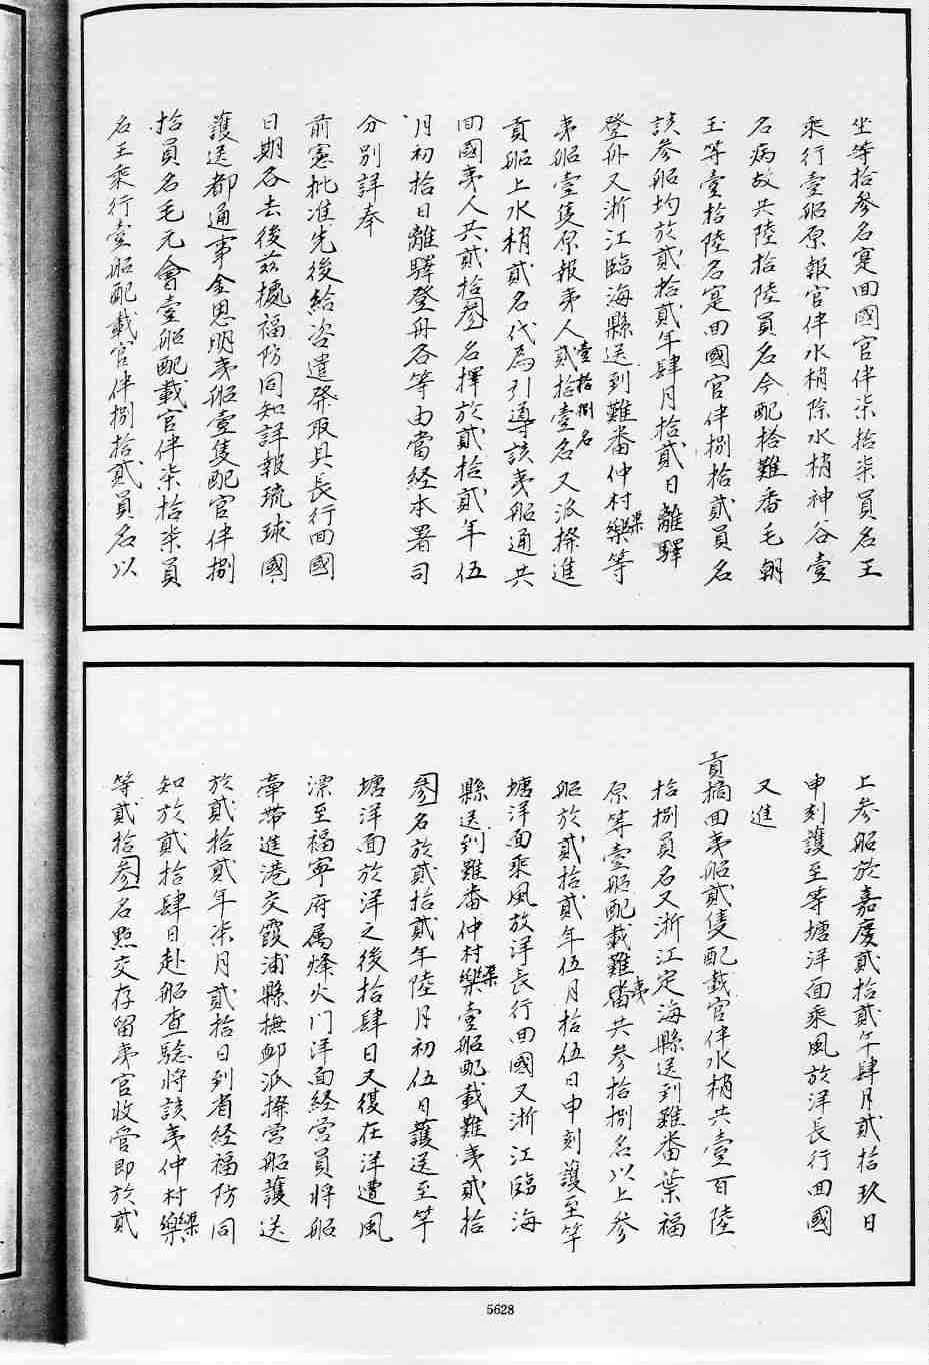 坐等拾參名寔囬國官伴柒拾柒員名王
乘行壹船原報官伴水梢除水梢神谷壹
名病故共陸拾陸員名今配搭難番毛朝
玉等壹拾陸名寔囬國官伴捌拾貳員名
該參船均於貳拾貳年肆月拾貳日離驛
登舟又浙江臨海縣送到難番仲村樂渠等
夷船壹隻原報夷人貳拾壹名壹拾捌名又派撥進
貢船上水梢貳名代為引導該夷船通共
囬國夷人共貳拾參名擇於貳拾貳年伍
月初拾日離驛登舟各等由當經本署司
分別詳奉
前憲批准先後給咨遣發取具長行囬國
日期各去後茲據福防同知詳報琉球國
護送都通事金思明夷船壹隻配官伴捌
拾員名毛元會壹船配載官伴柒拾柒員
名王乘行壹船配載官伴捌拾貳員名以
上參船於嘉慶貳拾貳年肆月貳拾玖日
申刻護至竿塘洋面乘風放洋長行囬國
又進
貢摘囬夷船貳隻配載官伴水梢共壹百陸
拾捌員名又浙江定海縣送到難番葉福
原等壹船配載難夷共參拾捌名以上參
船於貳拾貳年伍月拾伍日申刻護至竿
塘洋面乘風放洋長行囬國又浙江臨海
縣送到難番仲村樂渠壹船配載難夷貳拾
參名於貳拾貳年陸月初伍日護送至竿
塘洋面放洋之後拾肆日又復在洋遭風
漂至福寧府属烽火門洋面經營員將船
牽帶進港交霞浦縣撫卹派撥營船護送
於貳拾貳年柒月貳拾日到省經福防同
知於貳拾肆日赴船查驗將該夷仲村樂渠
等貳拾參名點交存留夷官收管即於貳
5628